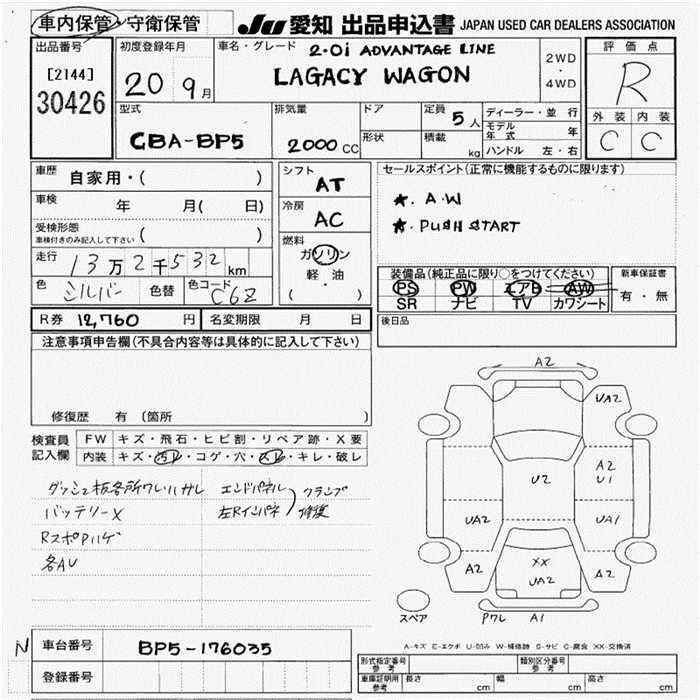 車内保管・守衛保管 JU 愛知 出品申込書 JAPAN USED CAR DEALERS ASSOCIATION
出品番号
[2144]
30426
初度登録年月
20 9月
車名・グレード
2.0i ADVANTAGE LINE
LAGACY WAGON
2WD
・
4WD
評価点
R
外装 内装
C C
型式
CBA-BP5
排気量
2000 CC
ドア
形状
定員 5人
積載 kg
ディーラー・並行
モデル年式 年
ハンドル 左・右
車歴 自家用・( )
車検 年 月( 日)
受検形態
車検付きのみ記入して下さい ( )
走行 13万2千532km
色 シルバー 色替 色コード C6Z
シフト
AT
冷房
AC
燃料
ガソリン
軽・油
( ・ )
セールスポイント(正常に機能するものに限ります)
★. A.W
★. PUSH START
装備品(純正品に限り○をつけてください)
PS PW エアB AW
SR ナビ TV カワシート
新車保証書
有・無
R券 12,760円 名変期限 月 日
後日品
注意事項申告欄(不具合内容等は具体的に記入して下さい)
修復歴 有 〔箇所 〕
検査員
記入欄
FW キズ・飛石・ヒビ割・リペア跡・X要
内装 キズ・汚レ・コゲ・穴・スレ・キレ・破レ
ダッシュ板各所ワレ/ハガレ
バッテリーX
RスポPハゲ
各AU
エンドパネル
左Rインパネ
クランプ
修復
A2
UA2
U2
A2
U1
UA2
UA1
A2
XX
UA2
A2
スペア
Pワレ A1
A-キズ E-エクボ U-凹み W-補修跡 S-サビ C-腐食 XX-交換済
N 車台番号 BP5-176035
登録番号
型式指定番号
参考
類別区分番号
参考
車庫証明用
参考
長さ cm 幅 cm 高さ cm